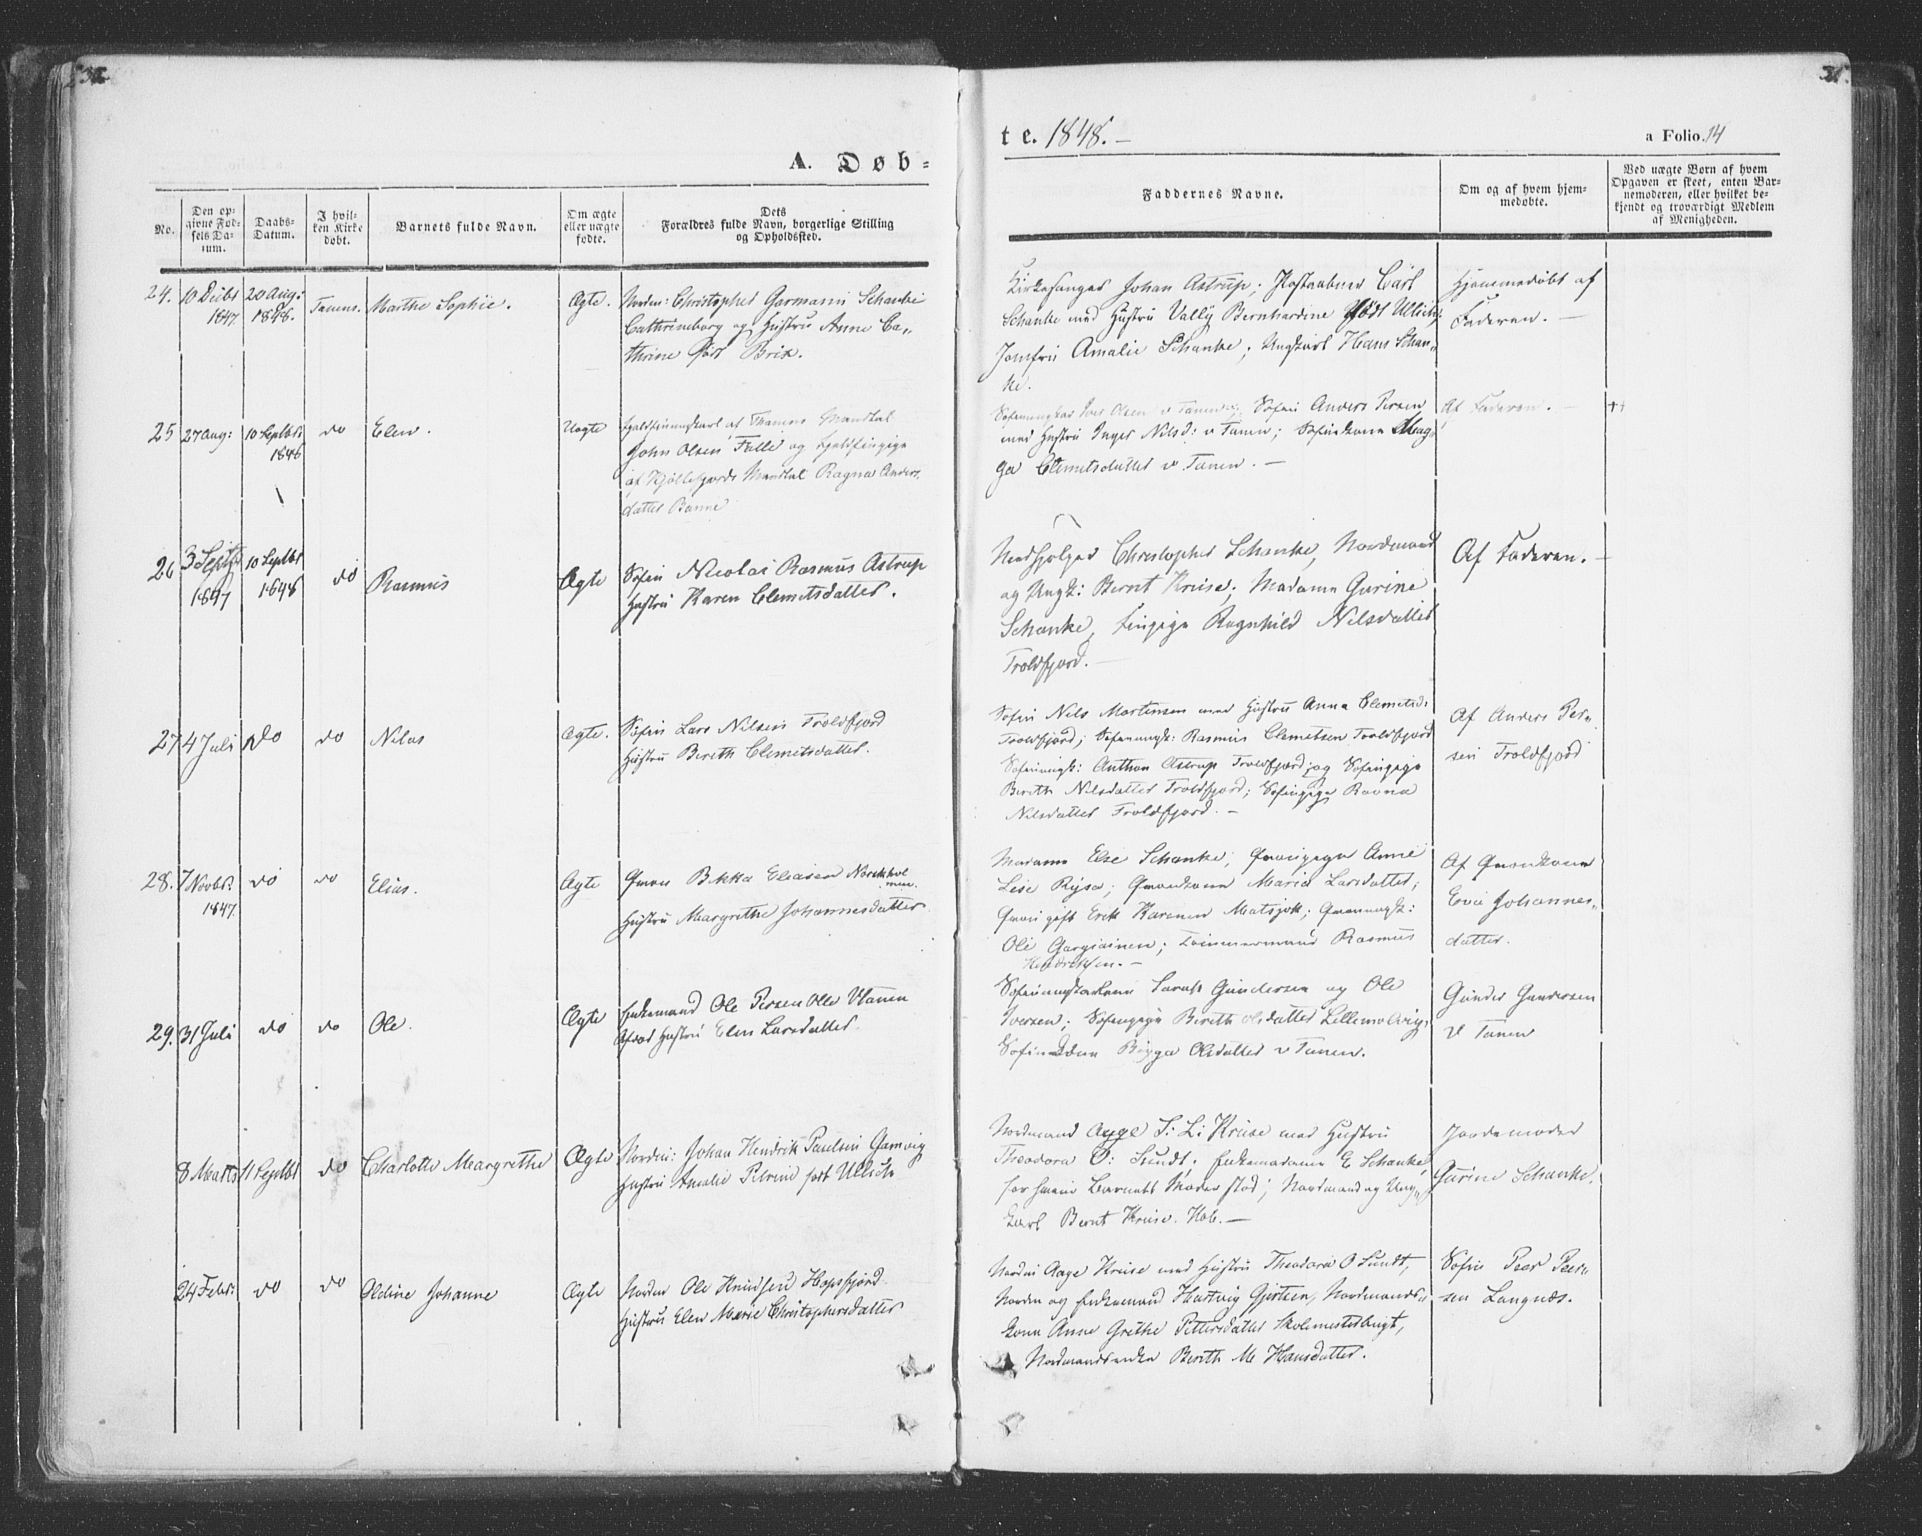 A. Døb-
te. 1848. –
a Folio. 14
No.
Den op-
givne Fød-
sels Da-
tum.
Daabs-
Datum.
I hvil-
ken Kirke
døbt.
Barnets fulde Navn.
Om ægte
eller uægte
fødte.
Dets
Forældres fulde Navn, borgerlige Stilling
og Opholdssted.
Faddernes Navne.
Om og af hvem hjem-
medøbte.
Ved uægte Børn af hvem
Opgaven er skeet, enten Bar-
nemoderen, eller hvilket be-
kjendt og troværdigt Medlem
af Menigheden.
24.
10 Decbr
1847.
20 Aug:
1848.
Tanens.
Marthe Sophie.
Ægte.
Normn: Christopher Garmann Schanke
Cathrineborg og Hustru Anne Ca-
thrine født Brix.
Kirkesanger Johan Astrup;
Carl
Schanke med Hustru Vally Bernhardine født Ullich;
Jomfru Amalie Schanke, Ungkarl Hans Schan-
ke.
Hjemmedøbt af
Faderen. –
25
27 Aug:
10 Septbr
1848
do
Elen.
Uægte
John Olsen Falle og
af Kjøllefjords Mandtal Ragna Anders-
datter Banne
Olsen v Tanen; Søfin Anders Persen
med Hustru Inger Nilsd: v Tanen; Søfinkone Mag-
ga Clemetsdatter v Tanen. –
Af Faderen. –
26
3 Septbr
1847
10 Septbr
1848
do
Rasmus
Ægte
Søfin Nicolai Rasmus Astrup
Hustru Karen Clemetsdatter.
Medhjelper Christopher Schanke, Nordmand
og Ungk: Bernt Kruse; Madame Gurine
Schanke, Finpige Ragnhild Nilsdatter
Troldfjord. –
Af Faderen. –
27
4 Juli
do
do
Nilas
Ægte.
Søfin Lars Nilsen Troldfjord
Hustru Bereth Clemetsdatter.
Søfin Nils Mortensen med Hustru Anna Clemetsd:
Troldfjord; Søfinungk: Rasmus Clemetsen Troldfjord
Søfinungk: Anthon Astrup Troldfjord; og Søfinpige
Bereth Nilsdatter Troldfjord; Søfinpige Ravna
Nilsdatter Troldfjord. –
Af Anders Per-
sen Troldfjord
28.
7 Novbr.
1847.
do
do
Elias.
Ægte
Qvæn Bekka Eliasen
Hustru Margrethe Johannesdatter
Madame Else Schanke; Qvænpige Anne
Lise Rysa; Qvænkone Maria Larsdatter;
Qvæn gift Erik Karenen Matsjok; Qvænungk:
Ole Gargiainen; Tømmermand Rasmus
Hendriksen. –
Af Qvænkone
Eva Johannes-
datter.
29.
31 Juli
do
do
Ole.
Ægte
Enkemand Ole Persen
Afdød Hustru Elen Larsdatter.
Gundersen og Ole
Iversen; Søfinpige Bereth Olsdatter
Søfinkone Bigga Olsdatter v Tanen.
Gunder Gundersen
v Tanen
8 Marts
11 Septbr
do
Charlotte Margrethe
Ægte
Normn: Johan Hendrik Paulsen Gamvig
Hustru Amalie Petrine født Ullich
Nordmand Aage S: L: Kruse med Hustru
Theodora O: Sundt; Enkemadame E Schanke,
Barnets Moder stod; Nordmand og Ung-
karl Bernt Kruse. Hob. –
Jordemoder
Gurine Schanke.
24 Febr:
do
do
Oldine Johanne
Ægte
Normn Ole Knudsen Hopsfjord
Hustru Elen Marie Christophersdatter
Normn Aage Kruse med Hustru Theodora O Sundt,
Normn og Enkemand Hartvig Gjertsen, Nordmands-
kone Anne Grethe Pettersdatter Skolemesterbugt,
Nordmandsenke Bereth M Hansdatter.
Søfin Peer Peer-
sen Langnæs.